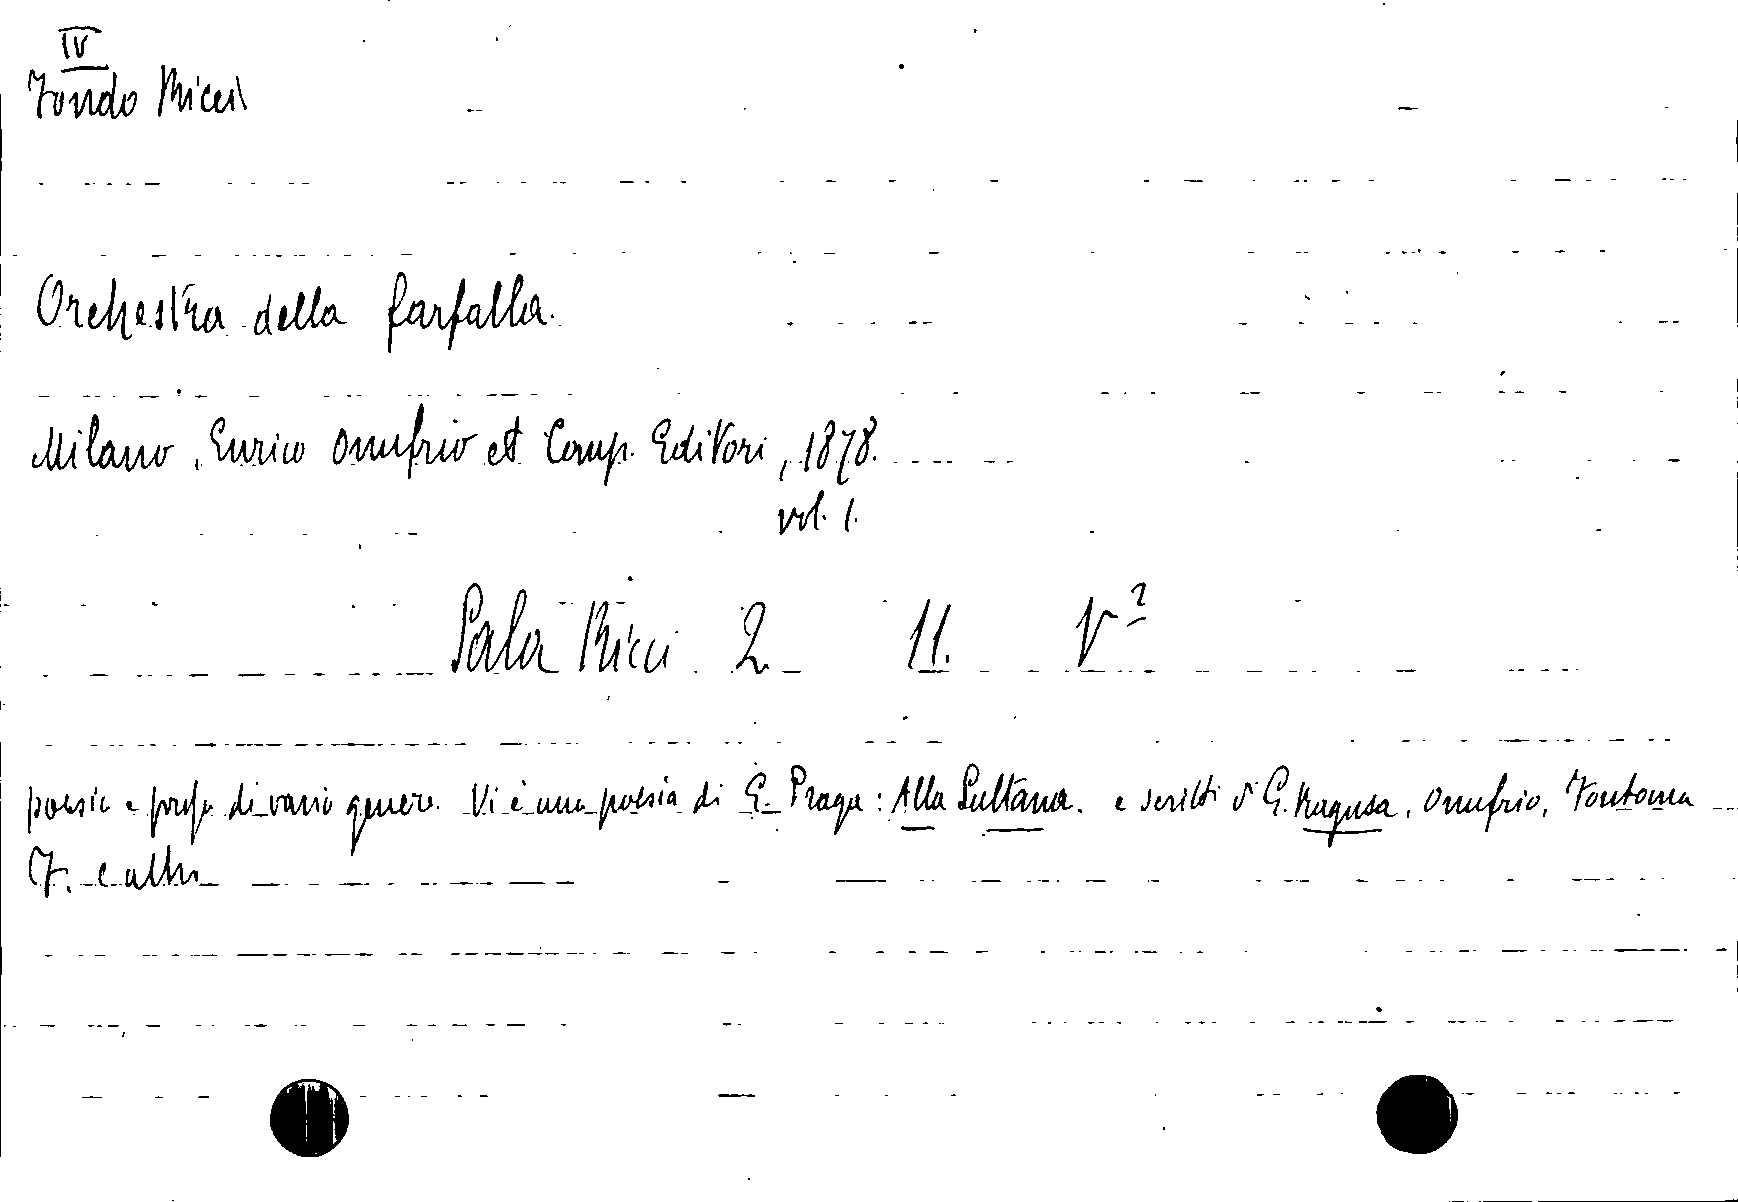 IV
Fondo Ricci
Orchestra della farfalla.
Milano, Enrico Onufrio et Comp. Editori, 1878.
vol. 1.
Sala Ricci 2 11. V2
poesie e prose di vario genere. Vi è una poesia di E. Praga: Alla Sultana. e scritti di G. Ragusa, Onufrio, Fontana
F. e altri